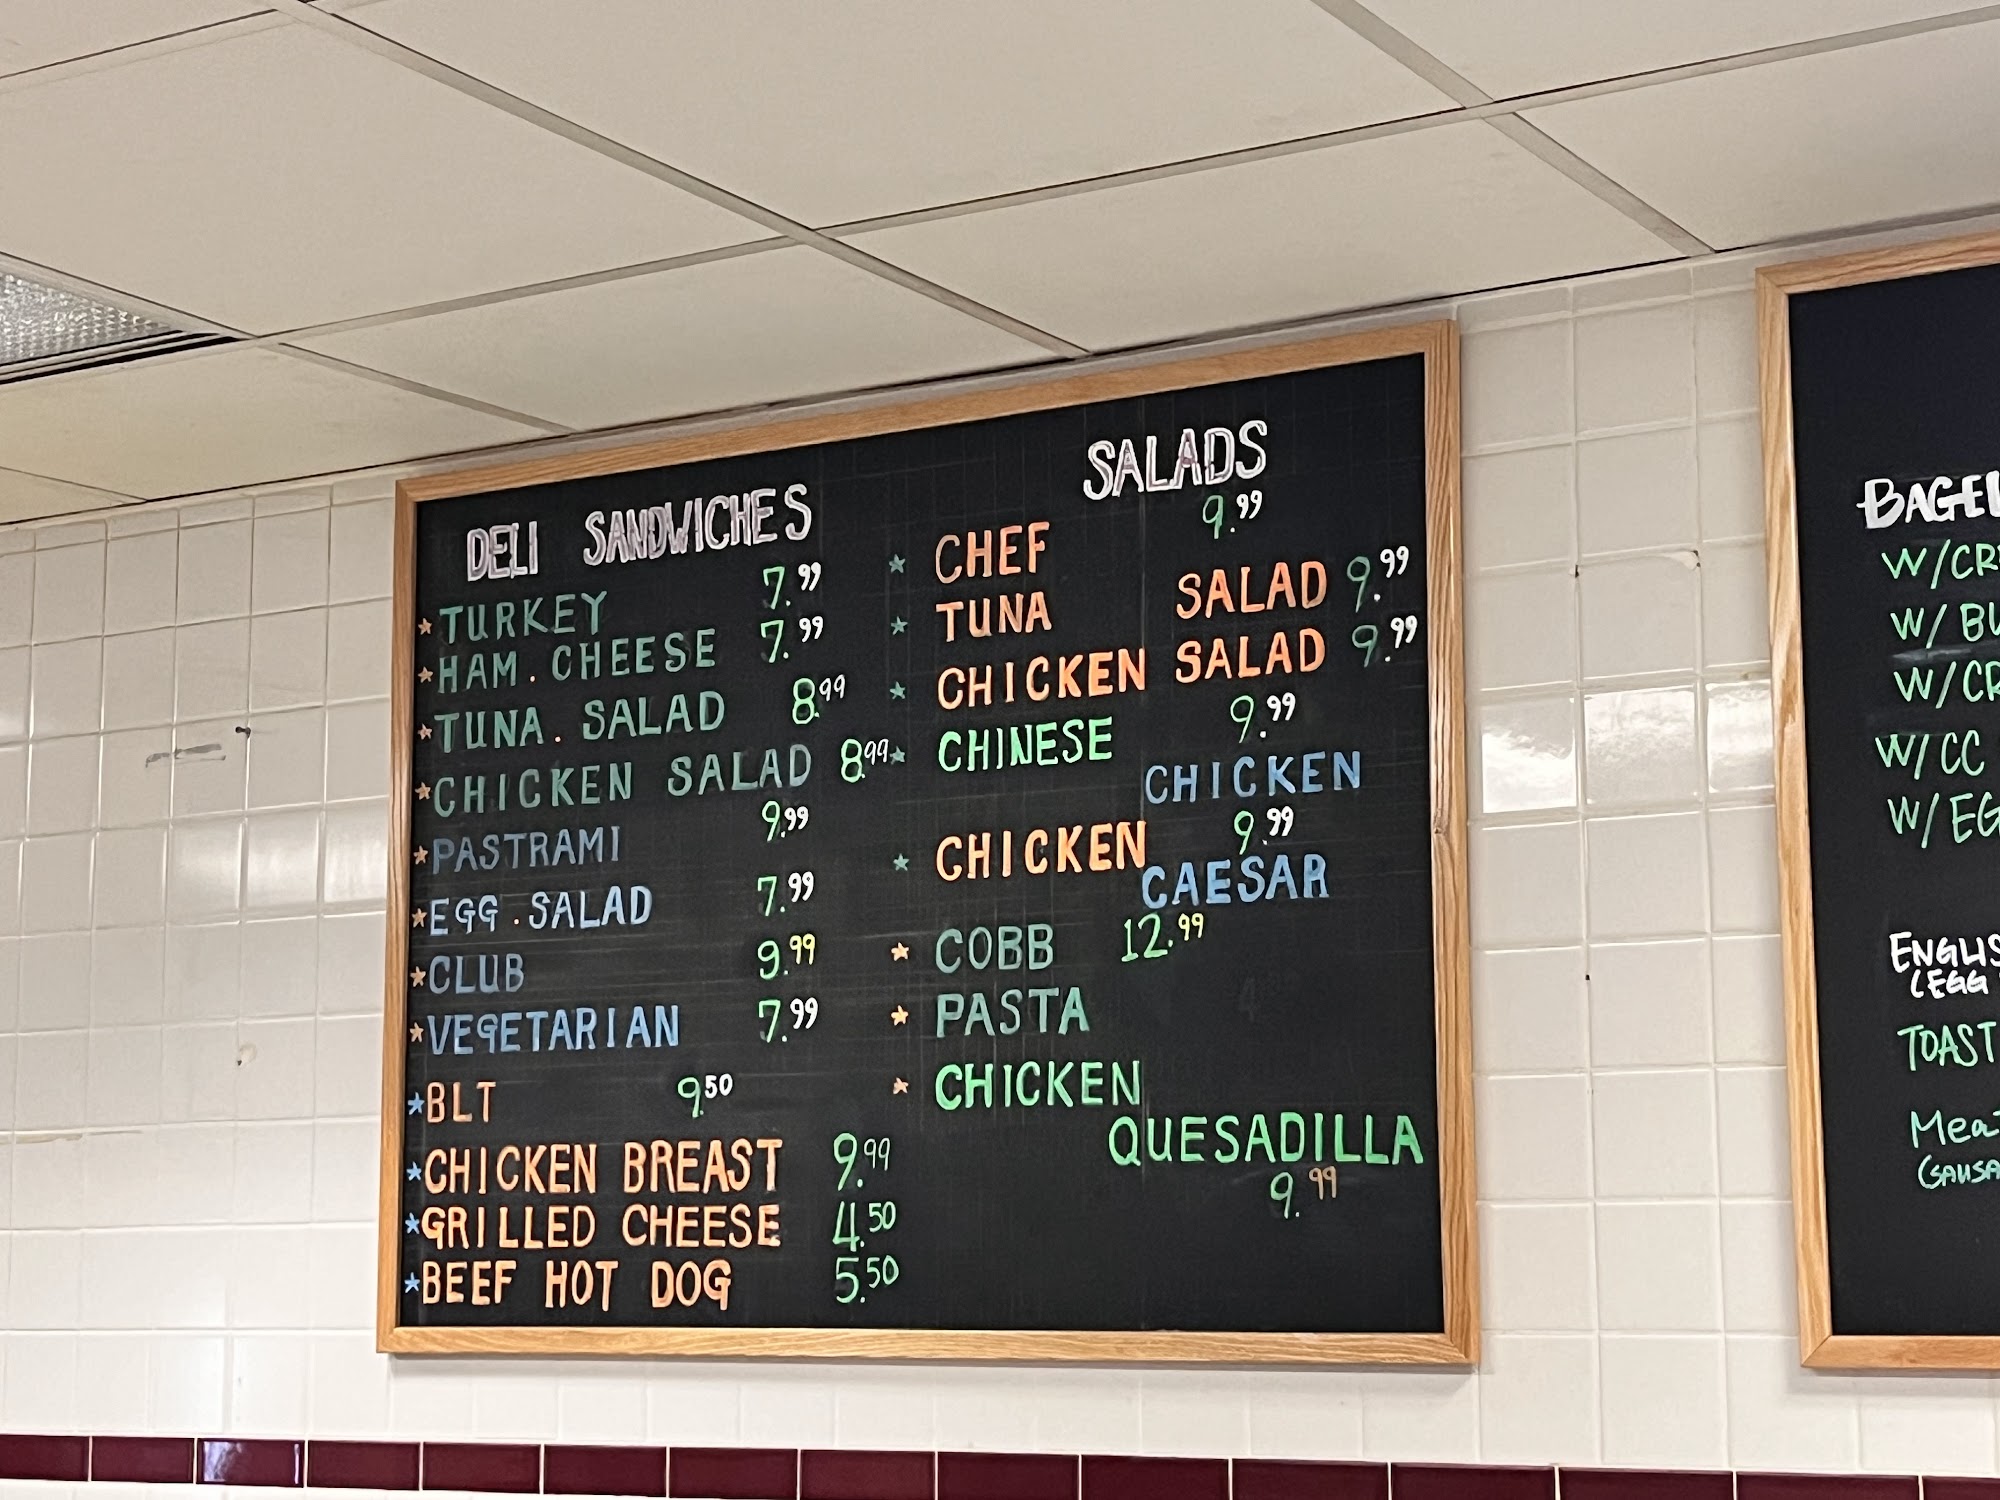 DELI SANDWICHES
TURKEY 7.99
HAM. CHEESE 7.99
TUNA. SALAD 8.99
CHICKEN SALAD 8.99
PASTRAMI 9.99
EGG. SALAD 7.99
CLUB 9.99
VEGETARIAN 7.99
BLT 9.50
CHICKEN BREAST 9.99
GRILLED CHEESE 4.50
BEEF HOT DOG 5.50
SALADS
CHEF 9.99
TUNA SALAD 9.99
CHICKEN SALAD 9.99
CHINESE 9.99
CHICKEN
CHICKEN 9.99
CAESAR
COBB 12.99
PASTA
CHICKEN
QUESADILLA
9.99
W/
W/
W/
W/CC
W/EG
(EGG
TOAST